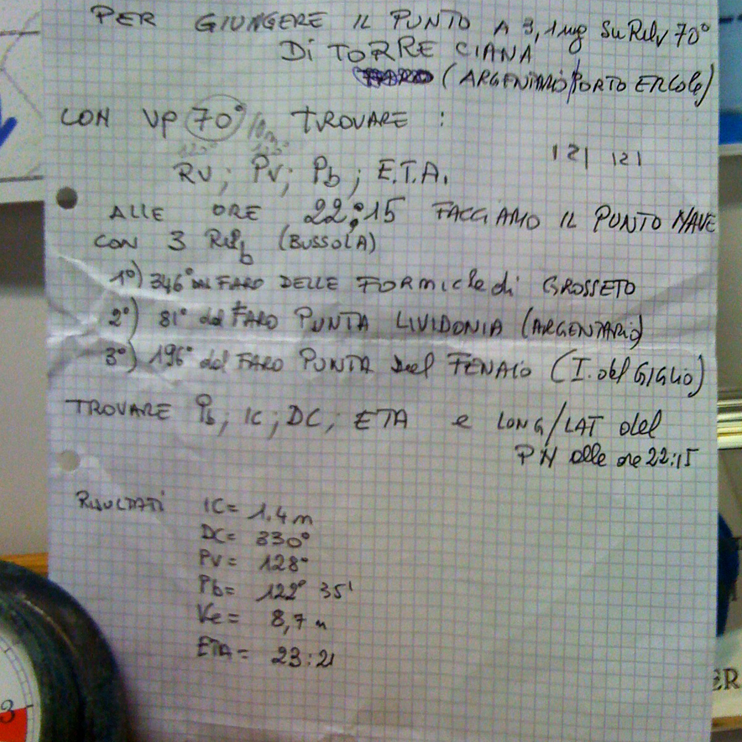 PER GIUNGERE IL PUNTO A 3,1 mg Su Rilv 70°
Di TORRE CIANA
(ARGENTARIO/PORTO ERCOLE)
CON VP 70° TROVARE :
121 121
RV ; PV ; Pb ; E.T.A.
ALLE ORE 22:15 FACCIAMO IL PUNTO NAVE
CON 3 Rilb (BUSSOLA)
1°) 346° dal FARO DELLE FORMICHE di GROSSETO
2°) 81° dal FARO PUNTA LIVIDONIA (ARGENTARIO)
3°) 196° dal FARO PUNTA del FENAIO (I. del GIGLIO)
TROVARE Pb ; IC ; DC ; ETA e LONG/LAT del
PN alle ore 22:15
RISULTATI IC = 1,4 m
DC = 330°
PV = 128°
Pb = 122° 35'
Ve = 8,7 n
ETA = 23:21
3
ER